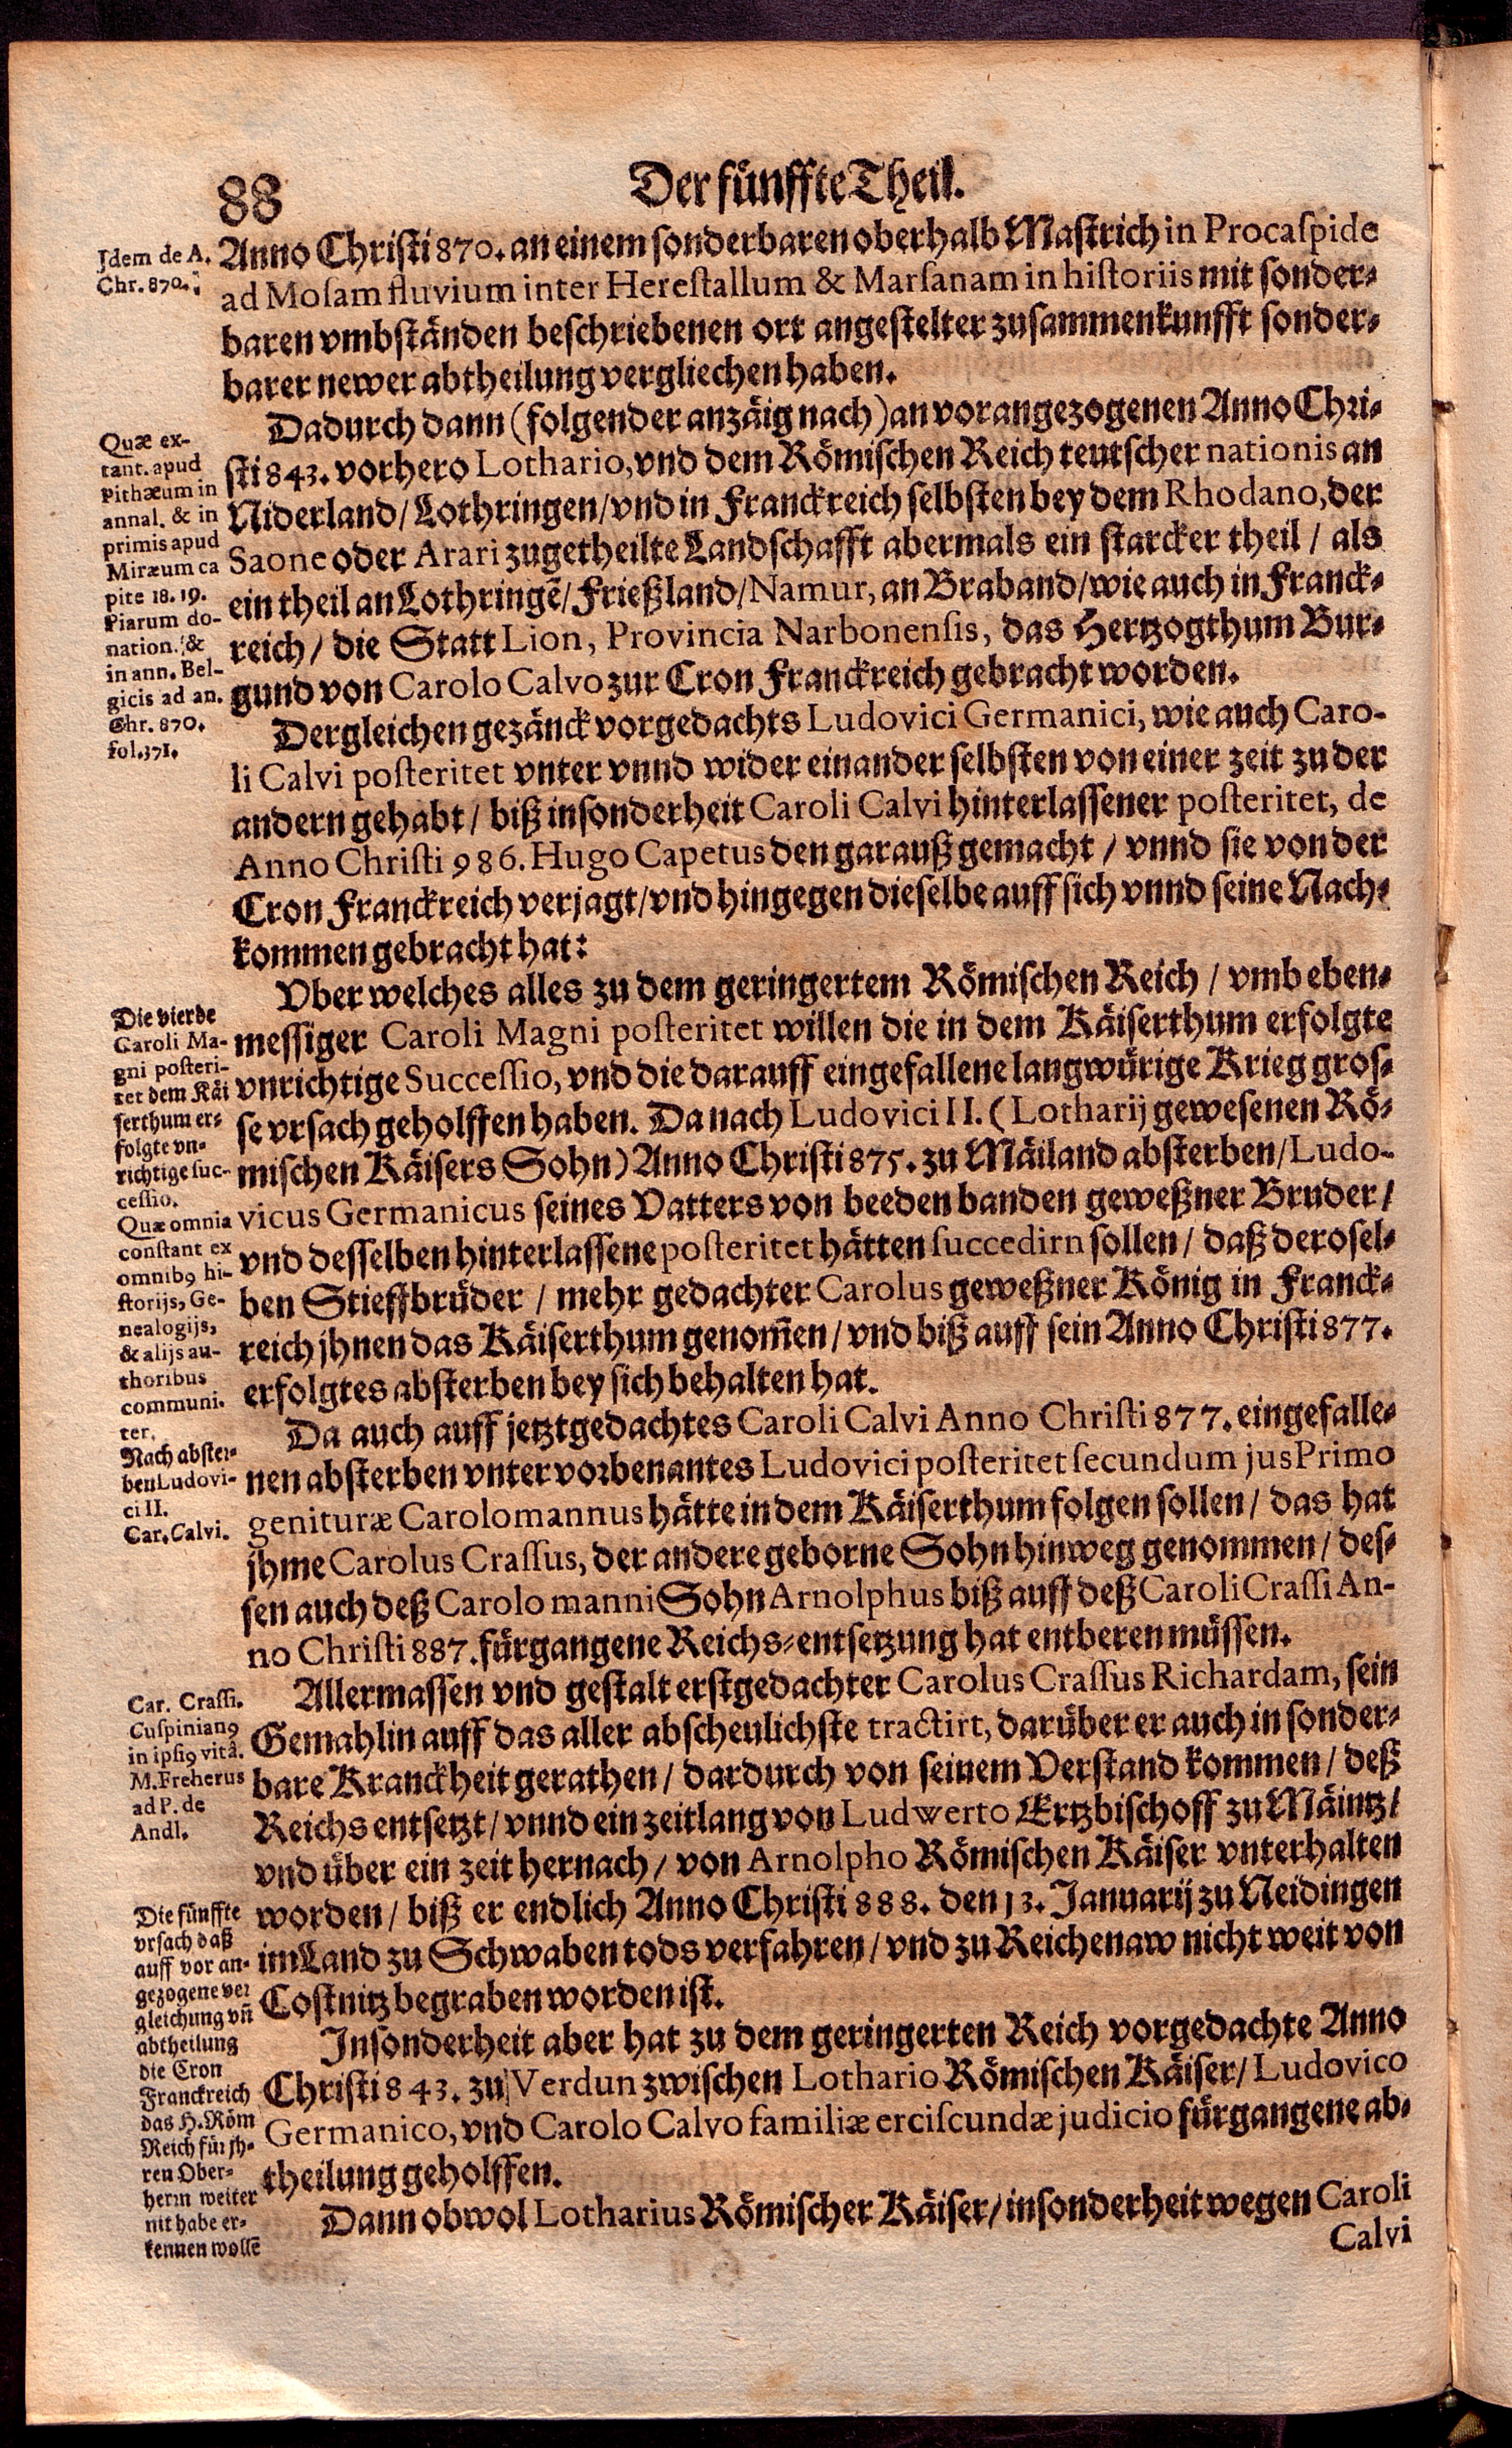 88
Der fünffte Theil.
Jdem de A.
Chr. 870.
Anno Christi 870. an einem sonderbaren oberhalb Mastrich in Procaspide
ad Mosam fluvium inter Herestallum & Marsanam in historiis mit sonder-
baren vmbständen beschriebenen ort angestelter zusammenkunfft sonder-
barer newer abtheilung vergliechen haben.
Quæ ex-
tant. apud
Pithæum in
annal. & in
primis apud
Miræum ca
pite 18. 19.
Piarum do-
nation. &
in ann. Bel-
gicis ad an.
Chr. 870.
fol. 371.
Dadurch dann (folgender anzäig nach) an vorangezogenen Anno Chri-
sti 843. vorhero Lothario, vnd dem Römischen Reich teutscher nationis an
Niderland/ Lothringen/ vnd in Franckreich selbsten bey dem Rhodano, der
Saone oder Arari zugetheilte Landschafft abermals ein starcker theil / als
ein theil an Lothringē/ Frießland/ Namur, an Braband/ wie auch in Franck-
reich / die Statt Lion, Provincia Narbonensis, das Hertzogthum Bur-
gund von Carolo Calvo zur Cron Franckreich gebracht worden.
Dergleichen gezänck vorgedachts Ludovici Germanici, wie auch Caro-
li Calvi posteritet vnter vnnd wider einander selbsten von einer zeit zu der
andern gehabt / biß insonderheit Caroli Calvi hinterlassener posteritet, de
Anno Christi 986. Hugo Capetus den garauß gemacht / vnnd sie von der
Cron Franckreich verjagt/ vnd hingegen dieselbe auff sich vnnd seine Nach-
kommen gebracht hat:
Die vierde
Caroli Ma-
gni posteri-
tet dem Käi
serthum er-
folgte vn-
richtige suc-
cessio.
Quæ omnia
constant ex
omnibꝰ hi-
storijs, Ge-
nealogijs,
& alijs au-
thoribus
communi.
ter.
Vber welches alles zu dem geringertem Römischen Reich / vmb eben-
messiger Caroli Magni posteritet willen die in dem Käiserthum erfolgte
vnrichtige Successio, vnd die darauff eingefallene langwürige Krieg gros-
se vrsach geholffen haben. Da nach Ludovici II. (Lotharij gewesenen Rö-
mischen Käisers Sohn) Anno Christi 875. zu Mäiland absterben/ Ludo-
vicus Germanicus seines Vatters von beeden banden geweßner Bruder /
vnd desselben hinterlassene posteritet hätten succedirn sollen / daß derosel-
ben Stieffbrüder / mehr gedachter Carolus geweßner König in Franck-
reich jhnen das Käiserthum genom̄en / vnd biß auff sein Anno Christi 877.
erfolgtes absterben bey sich behalten hat.
Nach abster-
ben Ludovi-
ci II.
Car. Calvi.
Da auch auff jetztgedachtes Caroli Calvi Anno Christi 877. eingefalle-
nen absterben vnter vorbenantes Ludovici posteritet secundum jus Primo
genituræ Carolomannus hätte in dem Käiserthum folgen sollen / das hat
jhme Carolus Crassus, der andere geborne Sohn hinweg genommen / des-
sen auch deß Carolo manni Sohn Arnolphus biß auff deß Caroli Crassi An-
no Christi 887. fürgangene Reichs-entsetzung hat entberen müssen.
Car. Crassi.
Cuspinianꝰ
in ipsiꝰ vitâ.
M. Freherus
ad P. de
Andl.
Allermassen vnd gestalt erstgedachter Carolus Crassus Richardam, sein
Gemahlin auff das aller abscheulichste tractirt, darüber er auch in sonder-
bare Kranckheit gerathen / dardurch von seinem Verstand kommen / deß
Reichs entsetzt / vnnd ein zeitlang von Ludwerto Ertzbischoff zu Mäintz /
vnd über ein zeit hernach / von Arnolpho Römischen Käiser vnterhalten
worden / biß er endlich Anno Christi 888. den 13. Januarij zu Neidingen
im Land zu Schwaben tods verfahren / vnd zu Reichenaw nicht weit von
Costnitz begraben worden ist.
Die fünffte
vrsach daß
auff vor an-
gezogene ver
gleichung vn̄
abtheilung
die Cron
Franckreich
das H. Röm
Reich für jh-
ren Ober-
herrn weiter
nit habe er-
kennen wollē
Insonderheit aber hat zu dem geringerten Reich vorgedachte Anno
Christi 843. zu Verdun zwischen Lothario Römischen Käiser / Ludovico
Germanico, vnd Carolo Calvo familiæ erciscundæ judicio fürgangene ab-
theilung geholffen.
Dann obwol Lotharius Römischer Käiser / insonderheit wegen Caroli
Calvi